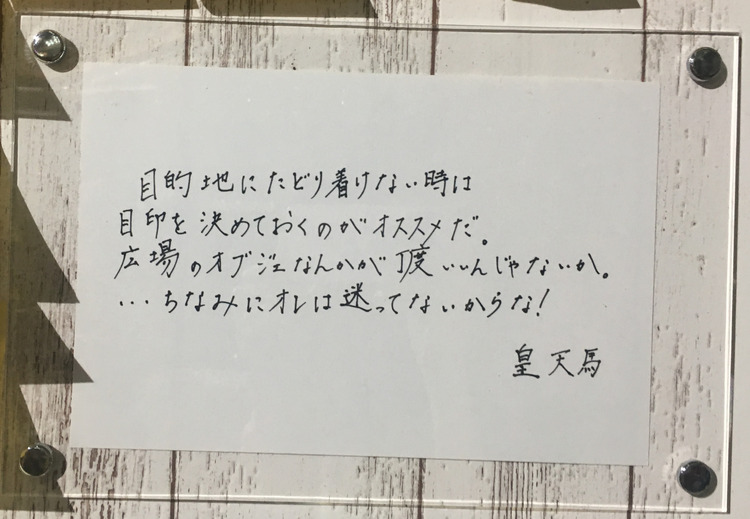 目的地にたどり着けない時は
目印を決めておくのがオススメだ。
広場のオブジェなんかが丁度いいんじゃないか。
…ちなみにオレは迷ってないからな！
皇天馬